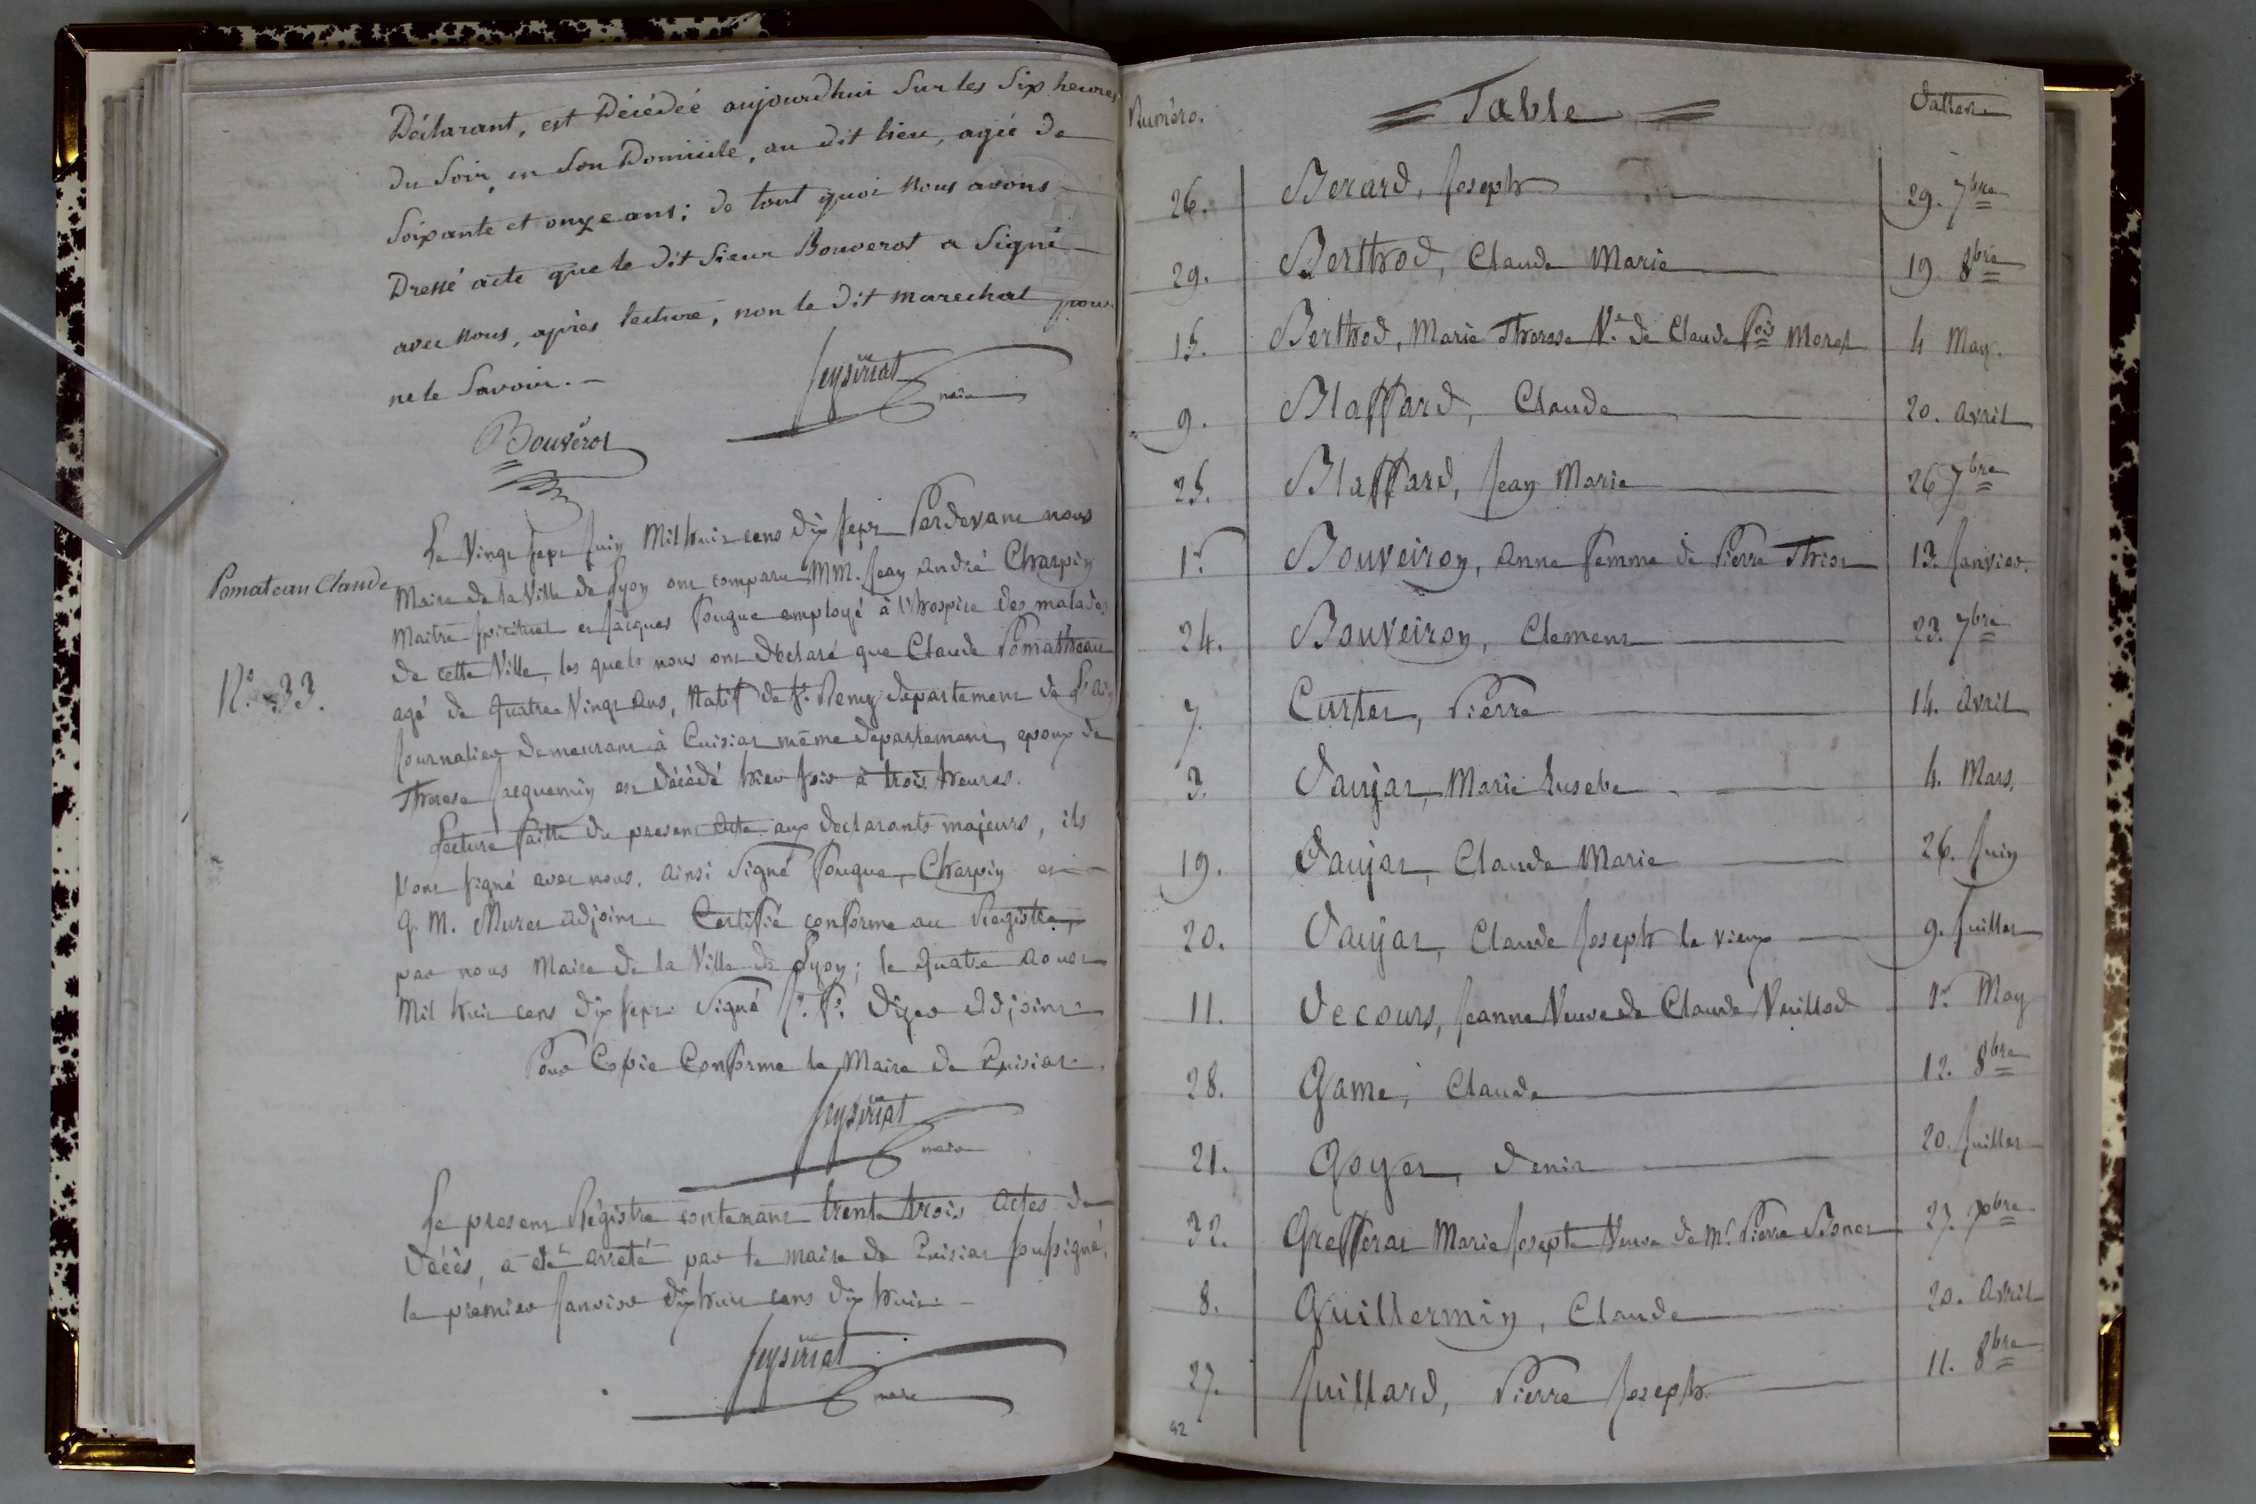 Déclarant, est Décédée aujourdhui Sur les Six heures
du Soir, en Son Domicile, au dit lieu, agée de
Soixante et onze ans; de tout quoi Nous avons
Dressé acte que le dit Sieur Bouverot a Signé
avec Nous, après lecture, non le dit marechal pour
ne le Savoir.
Seysiriat
maire
Bouverot
Le Vingt Sept Juin Mil huit cens dix Sept Pardevant nous
Pomateau Claude
Maire de la Ville de Lyon ont comparu MM. Jean André Charpin
Maitre Spirituel et Jacques Fougue employé à l'hospice des malades
de cette Ville, les quels nous ont déclaré que Claude Pomattheau
N.o 33.
agé de quatre Vingt ans, natif de St. Remy departement de L'ain
Journalier demeurant à Cuisiat même departement, epoux de
Therese Jacquemin est décédé hier soir à trois heures.
Lecture faitte du present acte aux declarants majeurs, ils
l'ont signé avec nous. ainsi Signé Fougue, Charpin et
q. M. Muret adjoint. Certifié conforme au Registre,
par nous Maire de la Ville de Lyon; le quatre aoust
Mil huit cens dix sept Signé adjoint
Pour Copie Conforme le Maire de Cuisiat.
Seysiriat
maire
Le present Régistre contenant trente trois actes de
décès, a été arreté par le maire de Cuisiat soussigné,
le premier Janvier dix huit cens dix huit
Seysiriat
maire
Numéro. Table Datte
26. Berard, Joseph 29. 7bre
29. Berthod, Claude Marie 19 8bre
15. Berthod, Marie Therese Ve. de Claude Fois Moret 4 May.
9. Blaffard, Claude 20. avril
25. Blaffard, Jean Marie 26 7bre
1r Bouveiron, anne femme de Pierre Thiot 13. Janvier.
24. Bouveiron, Clement 23. 7bre
7. Curtet, Pierre 14. avril
3. Danjat, Marie Eusebe 4. Mars.
19. Danjat, Claude Marie 26. Juin
20. Danjat, Claude Joseph le vieux 9. Juillet
11. Decours, Jeanne Veuve de Claude Vuillod 1r May
28. Game, Claude 12. 8bre
21. Goyet, Denis 20. Juillet
32. Grefferat Marie Josepte Veuve de Mr. Pierre Bonet 27. Xbre
8. Guillermin, Claude 20. avril
27. Juillard, Pierre Joseph 11. 8bre
42